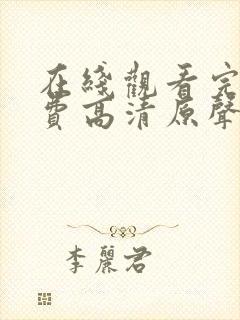 在綫觀看完
費高清原聲
李麗君